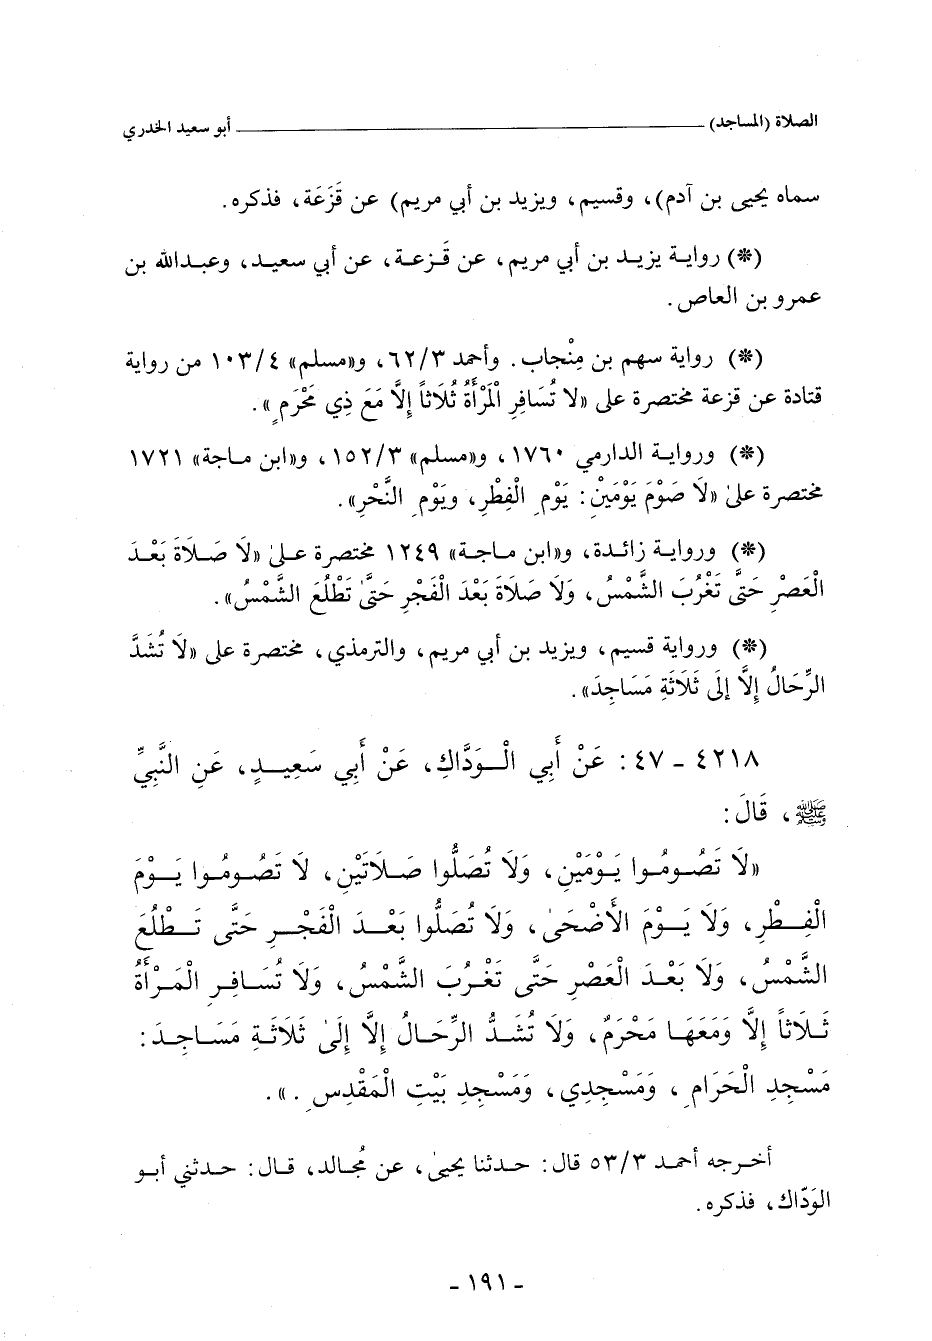 الصلاة (المساجد) ــــــــــــ أبو سعيد الخدري
سماه يحيى بن آدم)، وقسيم، ويزيد بن أبي مريم) عن قَزَعَة، فذكره.
(*) رواية يزيد بن أبي مريم، عن قَزعة، عن أبي سعيد، وعبدالله بن
عمرو بن العاص.
(*) رواية سهم بن مِنْجاب. وأحمد ٦٢/٣، و«مسلم» ١٠٣/٤ من رواية
قتادة عن قزعة مختصرة على «لا تُسَافِرِ الْمَرْأَةُ ثُلَاثاً إِلَّا مَعَ ذِي مَحْرَمٍ».
(*) ورواية الدارمي ١٧٦٠، و«مسلم» ١٥٢/٣، و«ابن ماجة» ١٧٢١
مختصرة علىٰ «لَا صَوْمَ يَوْمَيْنِ: يَوْمِ الْفِطْرِ، ويَوْمِ النَّحْرِ».
(*) ورواية زائدة، و«ابن ماجة» ١٢٤٩ مختصرة علىٰ «لَا صَلَاةَ بَعْدَ
الْعَصْرِ حَتَّى تَغْرُبَ الشَّمْسُ، وَلَا صَلَاةَ بَعْدَ الْفَجْرِ حَتَّىٰ تَطْلُعَ الشَّمْسُ».
(*) ورواية قسيم، ويزيد بن أبي مريم، والترمذي، مختصرة على «لَا تُشَدُّ
الرِّحَالُ إِلَّا إِلَى ثَلَاثَةِ مَسَاجِدَ».
٤٢١٨ - ٤٧: عَنْ أَبِي الْوَدَّاكِ، عَنْ أَبِي سَعِيدٍ، عَنِ النَّبِيِّ
ﷺ، قَالَ:
«لَا تَصُومُوا يَوْمَيْنِ، وَلَا تُصَلُّوا صَلَاتَيْنِ، لَا تَصُومُوا يَوْمَ
الْفِطْرِ، وَلَا يَوْمَ الأَضْحَىٰ، وَلَا تُصَلُّوا بَعْدَ الْفَجْرِ حَتَّى تَطْلُعَ
الشَّمْسُ، وَلَا بَعْدَ الْعَصْرِ حَتَّى تَغْرُبَ الشَّمْسُ، وَلَا تُسَافِرِ الْمَرْأَةُ
ثَلَاثاً إِلَّا وَمَعَهَا مَحْرَمٌ، وَلَا تُشَدُّ الرِّحَالُ إِلَّا إِلَىٰ ثَلَاثَةِ مَسَاجِدَ:
مَسْجِدِ الْحَرَامِ، وَمَسْجِدِي، وَمَسْجِدِ بَيْتِ الْمَقْدِسِ.».
أخرجه أحمد ٥٣/٣ قال: حدثنا يحيىٰ، عن مُجالد، قال: حدثني أبو
الوَدّاك، فذكره.
- ١٩١ -